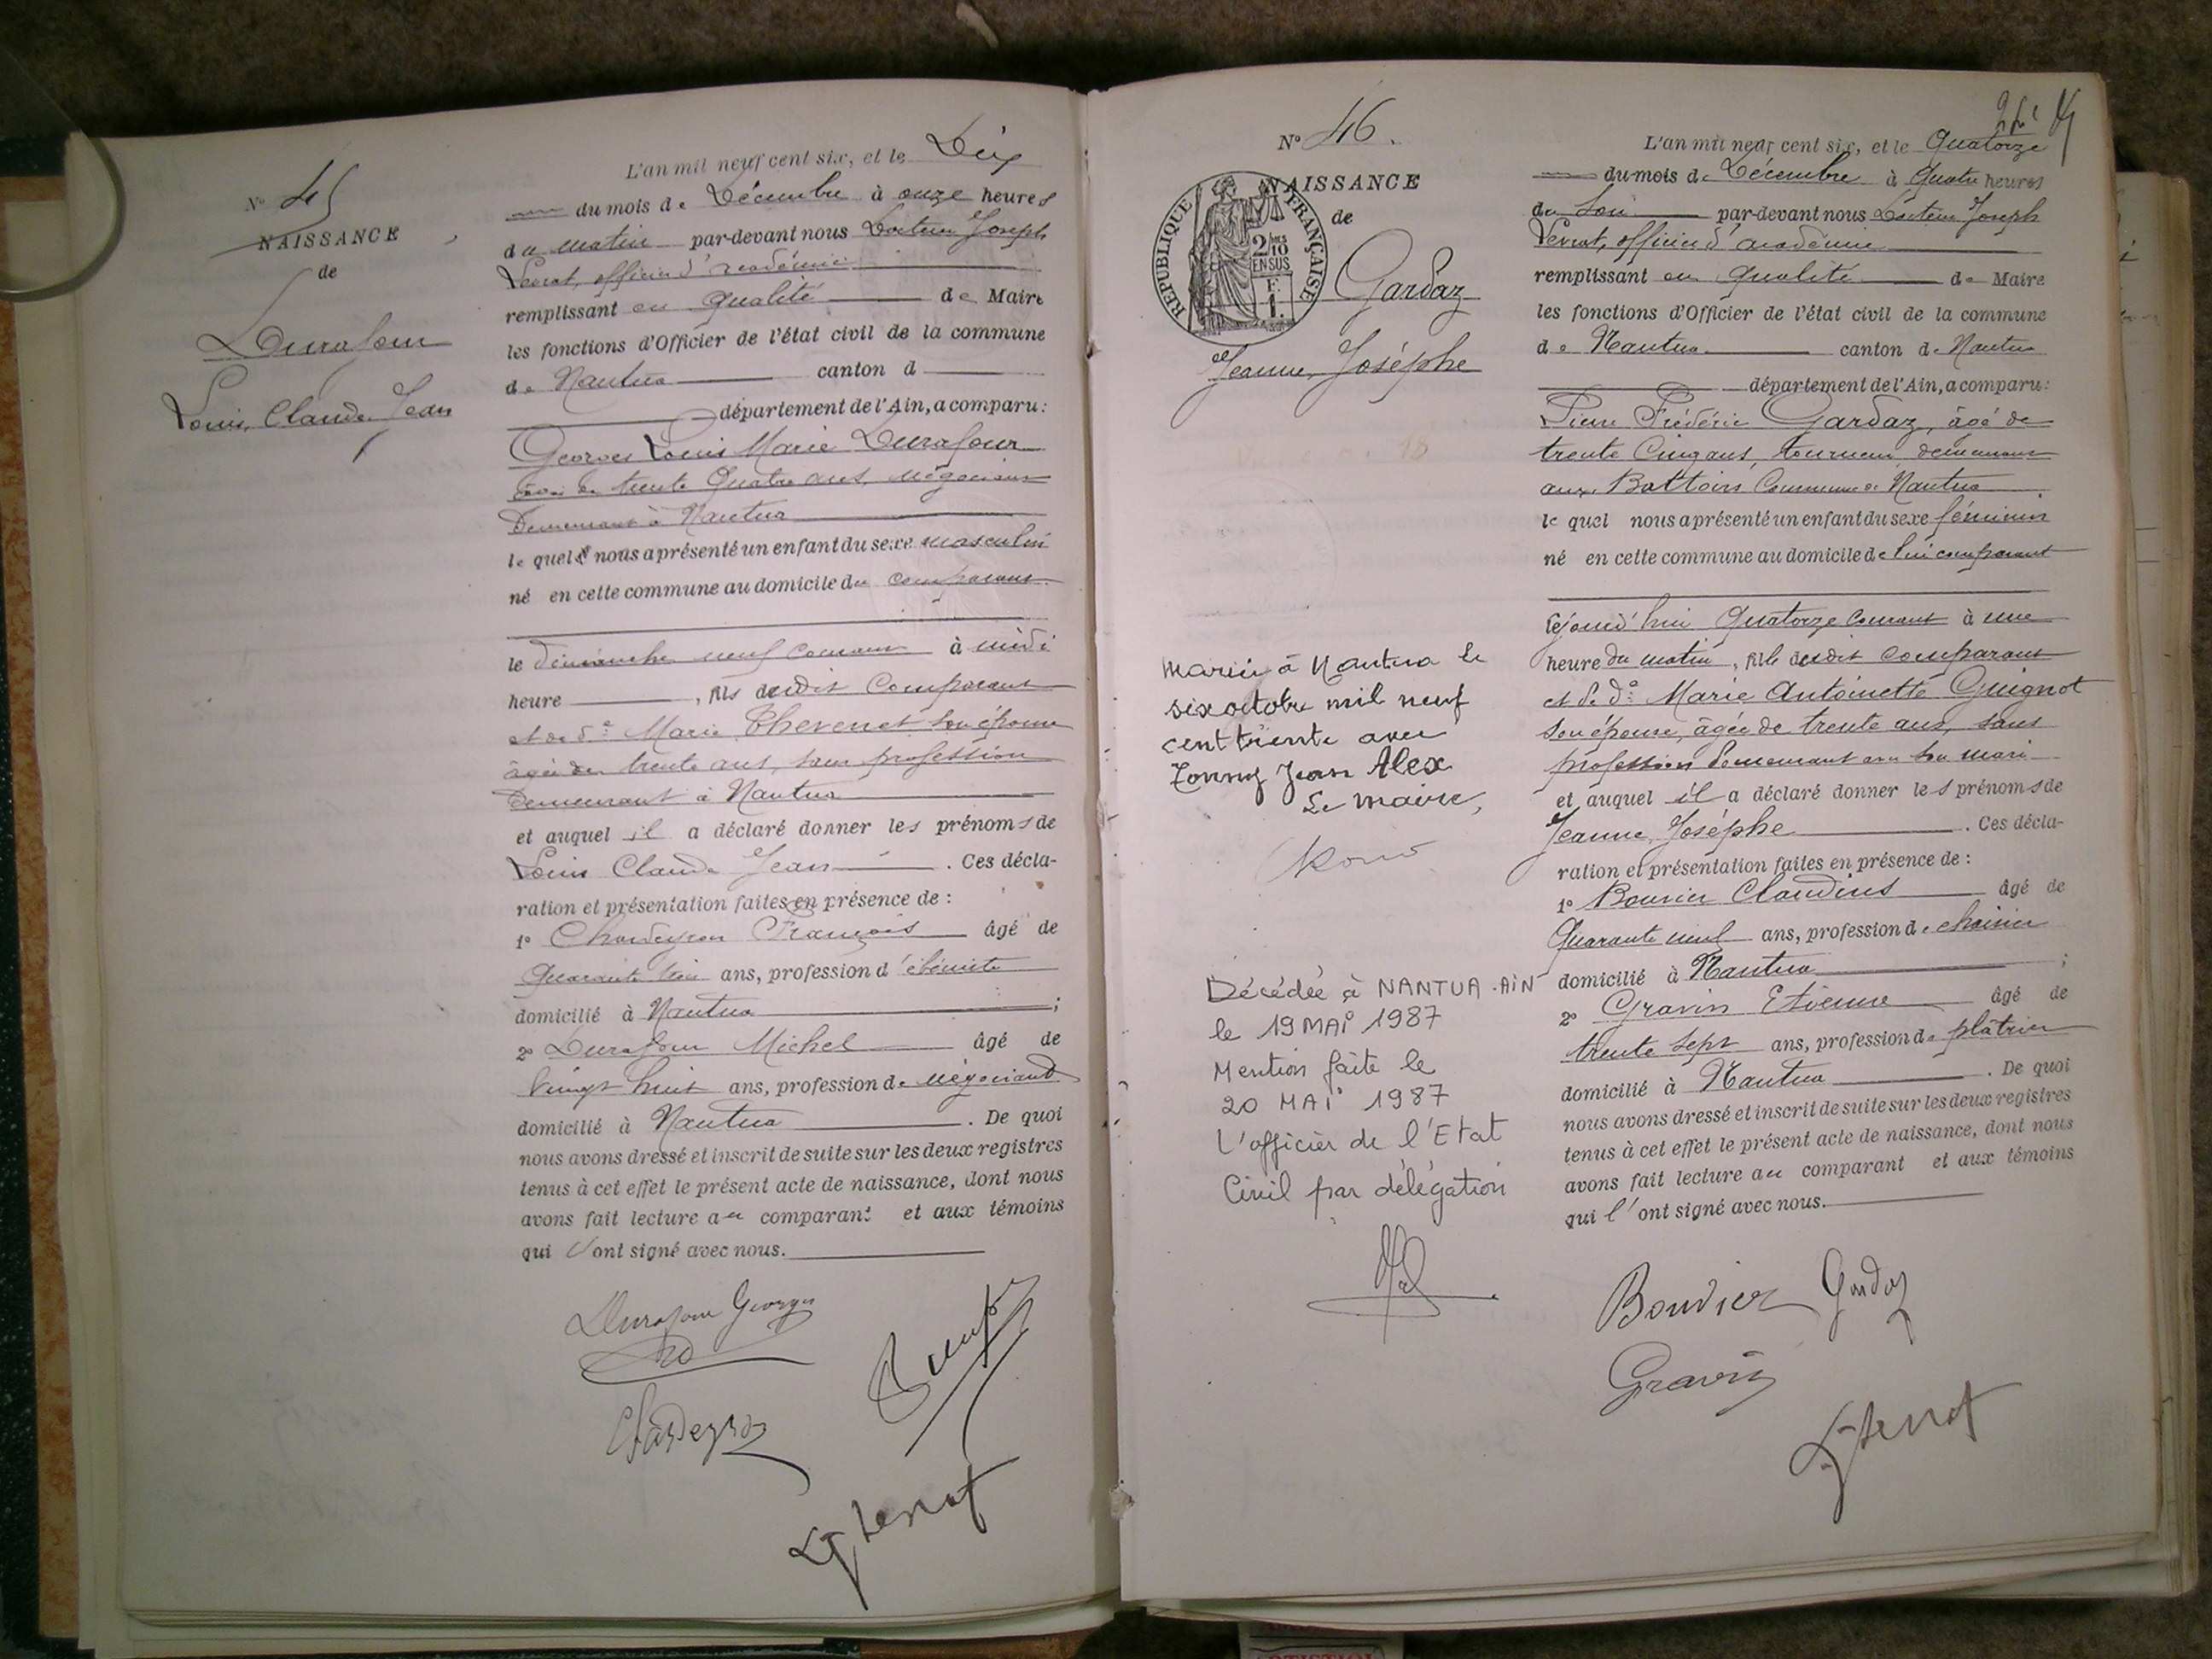 N° 45
NAISSANCE
de
Durafour
Louis Claude Jean
L'an mil neuf cent six, et le Dix
du mois de Décembre à onze heures
du matin par-devant nous Docteur Joseph
officier d'académie
remplissant en qualité de Maire
les fonctions d'Officier de l'état civil de la commune
de Nantua canton d
département de l'Ain, a comparu:
Georges Louis Marie Durafour
âgé de trente quatre ans, négociant
demeurant à Nantua
lequel nous a présenté un enfant du sexe masculin
né en cette commune au domicile du comparant
le dimanche neuf courant à midi
heure , fils dudit Comparant
et de de Marie Thevenet son épouse
âgée de trente ans, sans profession
demeurant à Nantua
et auquel il a déclaré donner les prénoms de
Louis Claude Jean . Ces décla-
ration et présentation faites en présence de :
1° Chardeyron François âgé de
quarante ans, profession d'ébéniste
domicilié à Nantua ;
2° Durafour Michel âgé de
vingt huit ans, profession de négociant
domicilié à Nantua . De quoi
nous avons dressé et inscrit de suite sur les deux registres
tenus à cet effet le présent acte de naissance, dont nous
avons fait lecture au comparant et aux témoins
qui l'ont signé avec nous.
Durafour Georges
Chardeyron
N° 46.
NAISSANCE
de
RÉPUBLIQUE FRANÇAISE
2/10
EN SUS
F.
1.
Gardaz
Jeanne, Josèphe
mariée à Nantua le
six octobre mil neuf
cent trente avec
Jean Alex
Le maire,
Décédée à NANTUA -AiN
le 19 MAi 1987
Mention faite le
20 MAi 1987
L'officier de l'Etat
Civil par délégation
L'an mil neuf cent six, et le Quatorze
du mois de Décembre à Quatre heures
du soir par-devant nous Docteur Joseph
officier d'académie
remplissant en qualité de Maire
les fonctions d'Officier de l'état civil de la commune
de Nantua canton de Nantua
département de l'Ain, a comparu:
Pierre Frédéric Gardaz, âgé de
trente cinq ans, tourneur, demeurant
aux Battoirs Commune de Nantua
lequel nous a présenté un enfant du sexe féminin
né en cette commune au domicile de lui comparant
cejourd'hui Quatorze courant à une
heure du matin, fille dudit comparant
et de de Marie Antoinette Guignot
son épouse, âgée de trente ans, sans
profession demeurant avec son mari
et auquel il a déclaré donner les prénoms de
Jeanne, Josèphe . Ces décla-
ration et présentation faites en présence de :
1° Bouvier Claudius âgé de
Quarante neuf ans, profession de chaisier
domicilié à Nantua ;
2° Gravin Etienne âgé de
trente sept ans, profession de plâtrier
domicilié à Nantua . De quoi
nous avons dressé et inscrit de suite sur les deux registres
tenus à cet effet le présent acte de naissance, dont nous
avons fait lecture au comparant et aux témoins
qui l'ont signé avec nous.
Bouvier Gardaz
Gravin